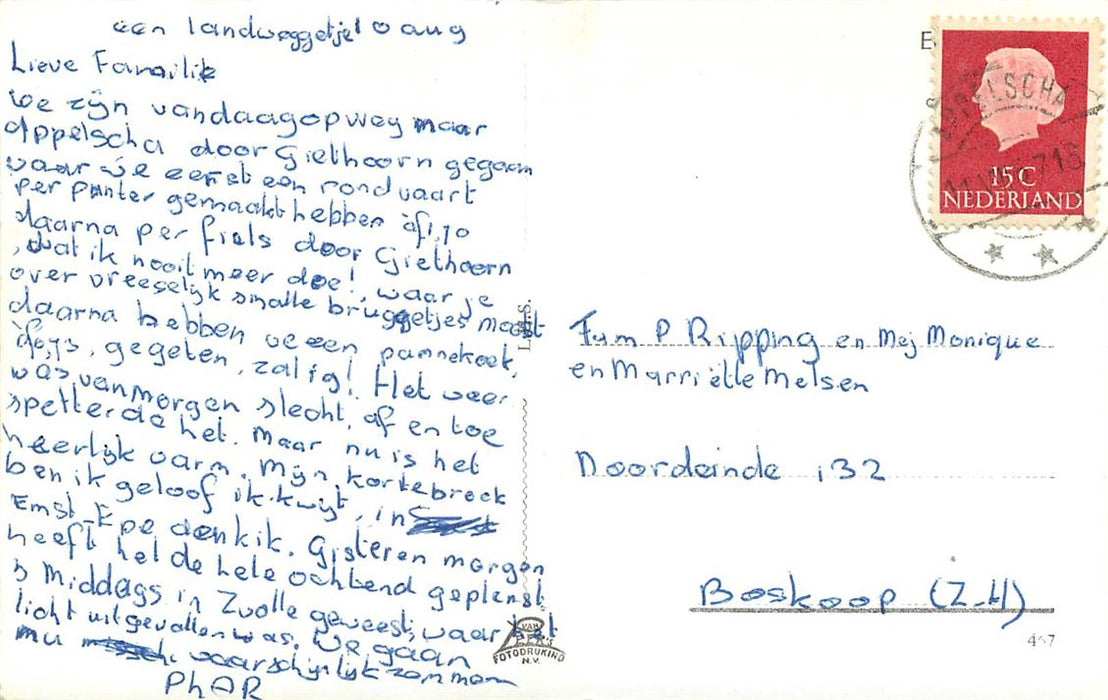 een landweggetje 10 aug
Lieve Familie
We zijn vandaag op weg naar
Appelscha door Giethoorn gegaan
waar we eerst een rondvaart
per punter gemaakt hebben à f1,70
daarna per fiets door Giethoorn
, wat ik nooit meer doe!, waar je
over vreeselijk smalle bruggetjes moest
daarna hebben we een pannekoek,
gegeten, zalig! Het weer
was vanmorgen slecht, af en toe
spetterde het. Maar nu is het
heerlijk warm. Mijn korte broek
ben ik geloof ik kwijt, in
Emst-Epe denk ik. Gisteren morgen
heeft het de hele ochtend geplenst
's Middags in Zwolle geweest, waar het
licht uitgevallen was. We gaan
nu waarschijnlijk zwemmen
E
APPELSCHA
15 C
NEDERLAND
L.H.S.
Fam P Ripping en Mej Monique
en Marriëtte Melsen
Noordeinde 132
Boskoop (Z-H)
VAN LEER'S
FOTODRUKIND
N.V.
467